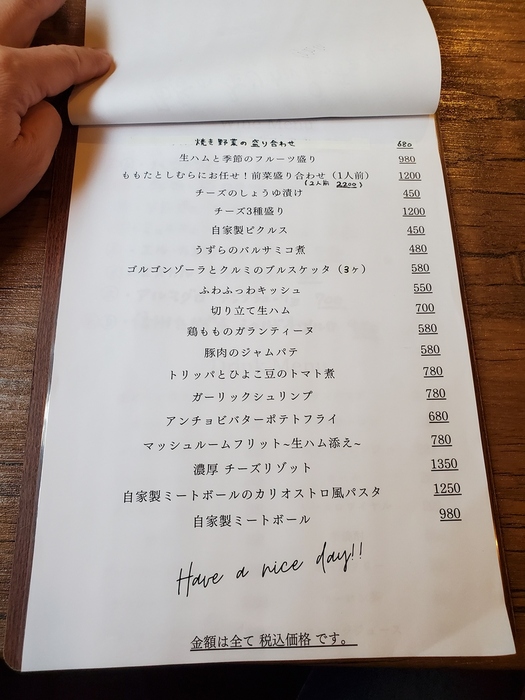 焼き野菜の盛り合わせ 680
生ハムと季節のフルーツ盛り 980
ももたとしむらにお任せ！前菜盛り合わせ（1人前） 1200
（2人前 2200）
チーズのしょうゆ漬け 450
チーズ3種盛り 1200
自家製ピクルス 450
うずらのバルサミコ煮 480
ゴルゴンゾーラとクルミのブルスケッタ（3ヶ） 580
ふわふっわキッシュ 550
切り立て生ハム 700
鶏もものガランティーヌ 580
豚肉のジャムパテ 580
トリッパとひよこ豆のトマト煮 780
ガーリックシュリンプ 780
アンチョビバターポテトフライ 680
マッシュルームフリット~生ハム添え~ 780
濃厚 チーズリゾット 1350
自家製ミートボールのカリオストロ風パスタ 1250
自家製ミートボール 980
Have a nice day!!
金額は全て 税込価格 です。